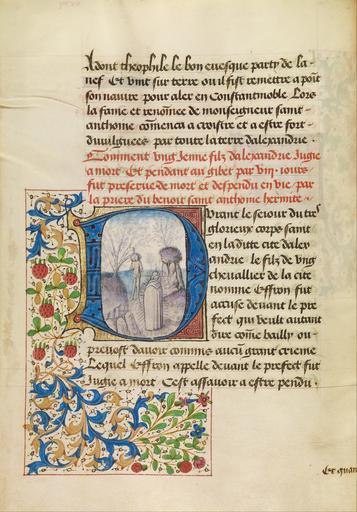 Adont theophile le bon evesque party de la
nef Et vint sur terre ou il fist remettre a point
son navire pour aler en Constantinoble Lors
la fame et renommee de monseigneur saint
anthoine commenca a croistre et a estre fort
divulguees par toute la terre dalexandrie .
Comment vng Jenne filz dalexandrie Jugie
a mort Et pendant au gibet par viij. iours
fut preserve de mort et despendu en vie par
la priere du benoit saint anthoine hermite
Durant le seiour du tres
glorieux corps saint
en la ditte cite dalex
andrie le filz de vng
chevallier de la cite
nomme Effron fut
accuse devant le pre
fect qui veult autant
dire comme bailly ou
prevost davoir commis aucun grant crieme
Lequel Effron appelle devant le prefect fut
Jugie a mort Cest assavoir a estre pendu .
Et quant